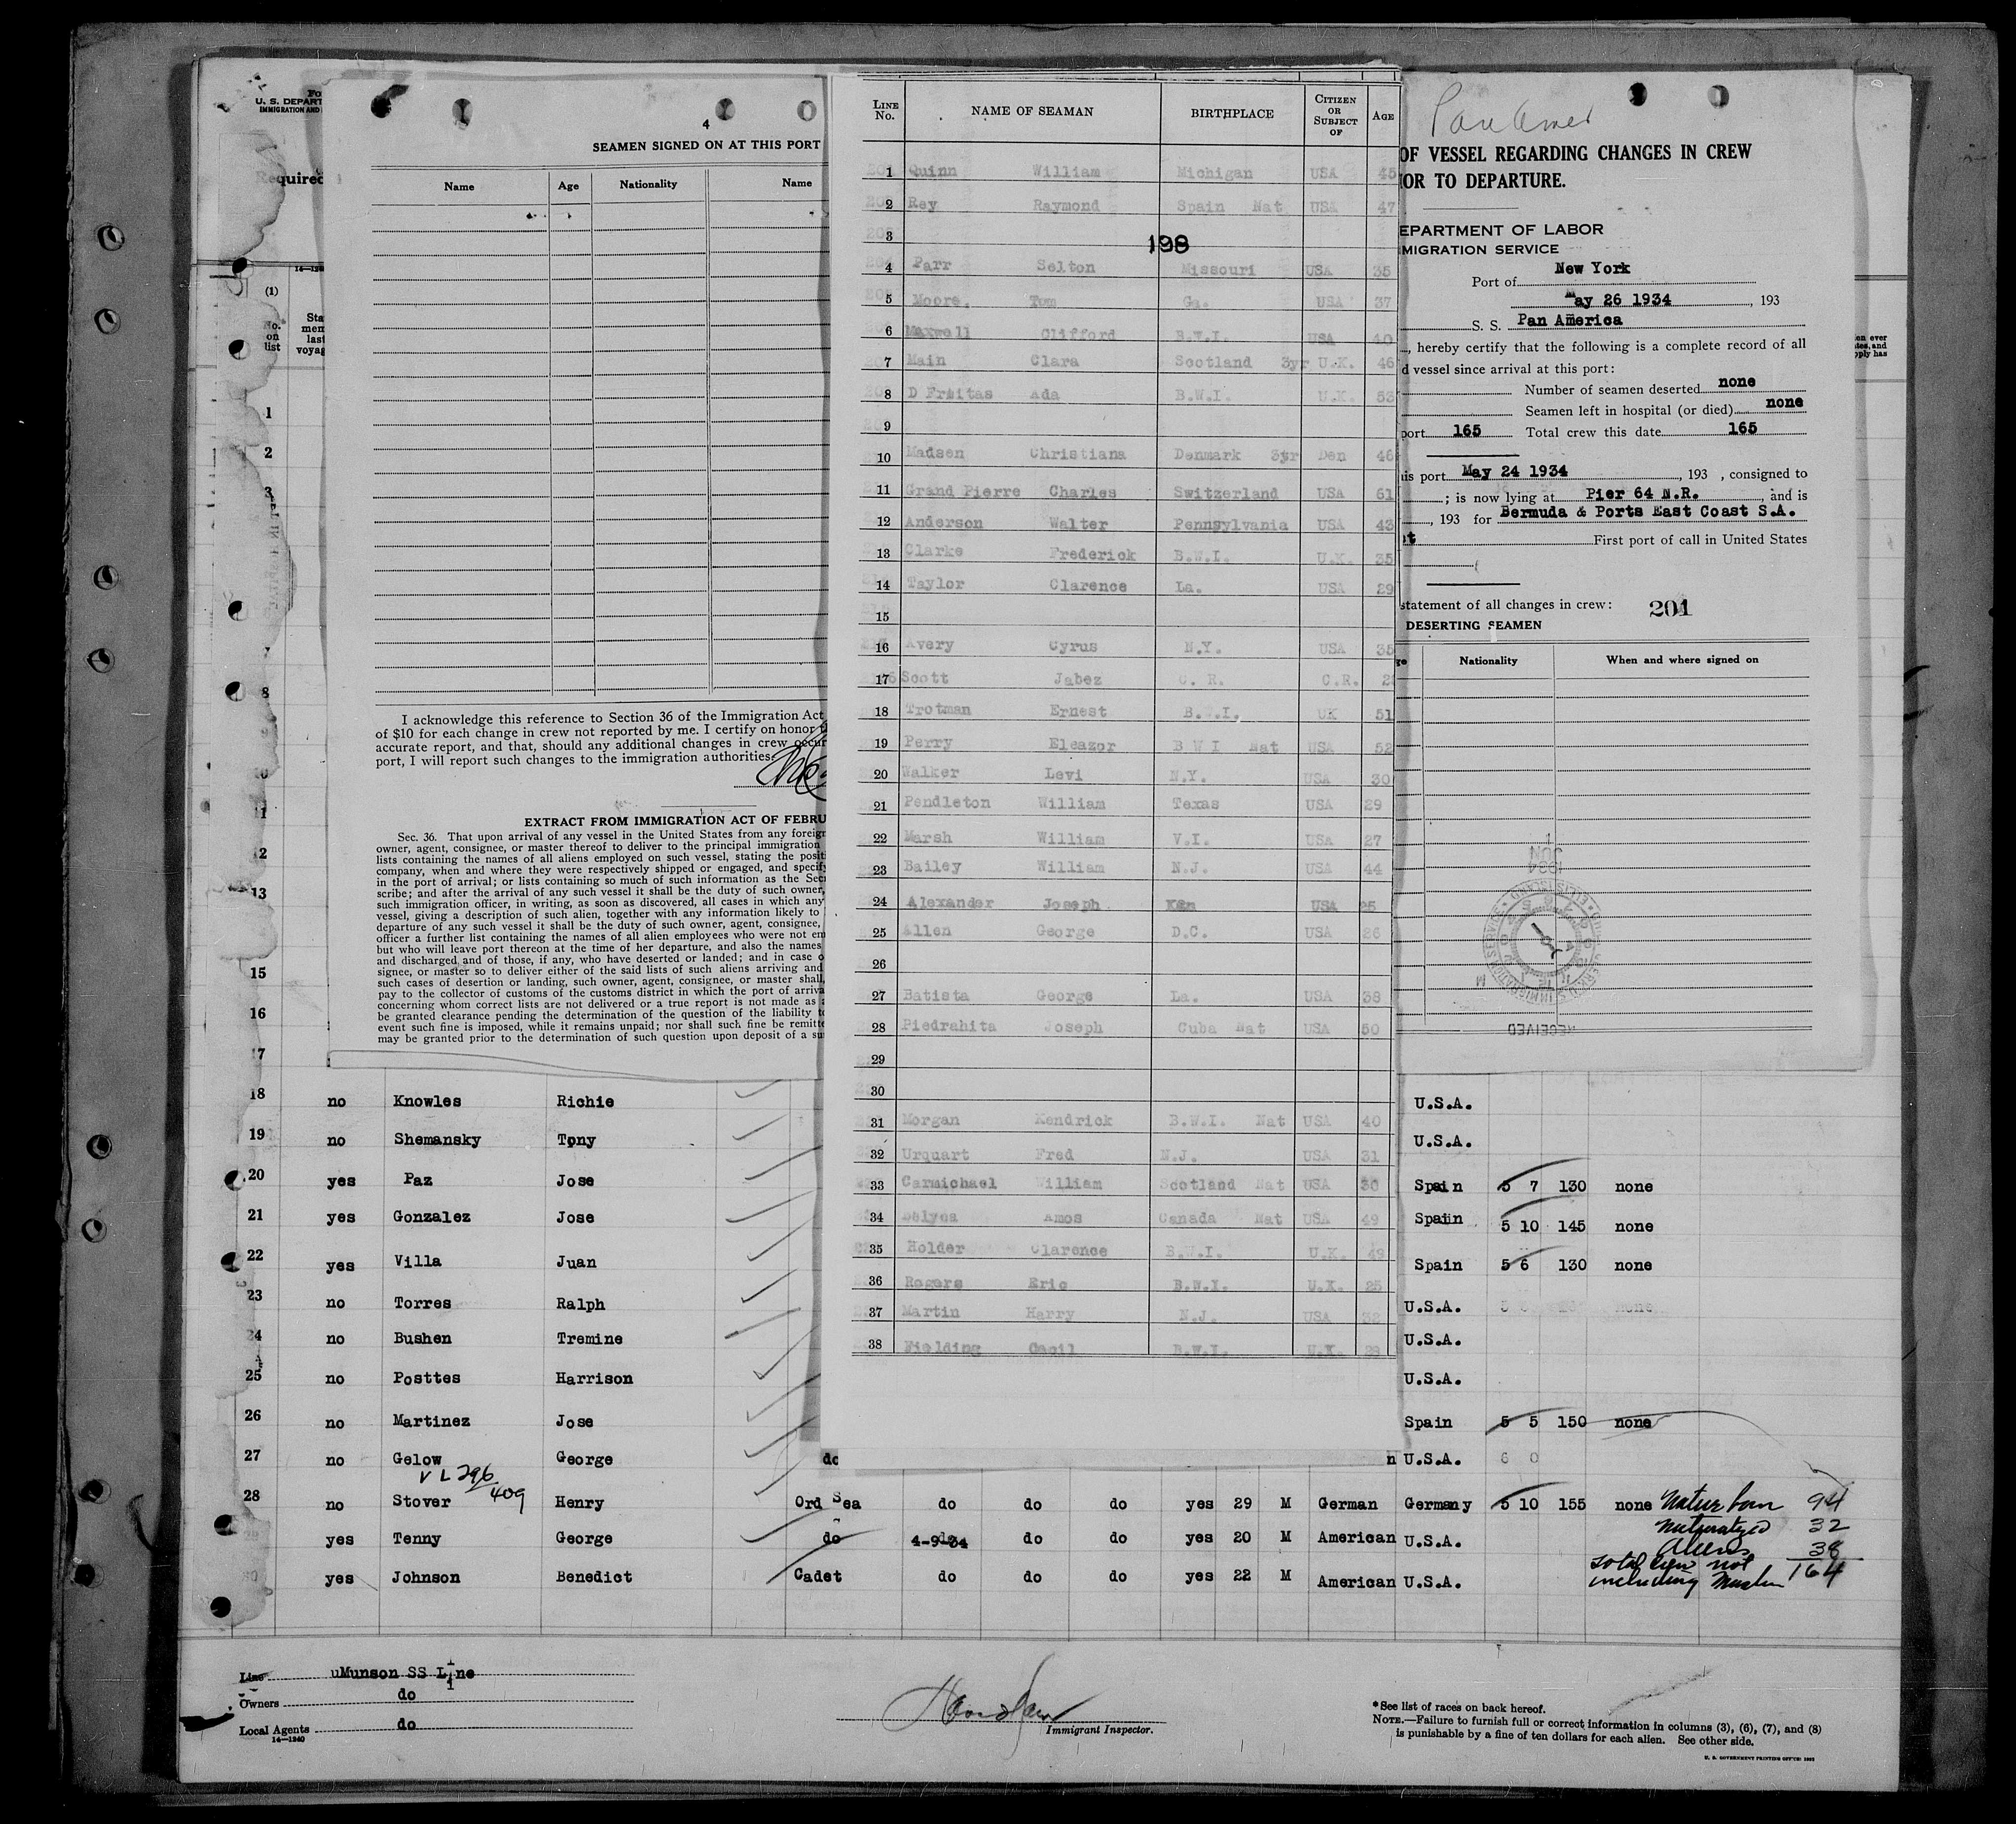 Fo
U. S. DEPART
IMMIGRATION AND
Required
14—1240
(1)
No. on list
Sta
men
last
voyag
4
SEAMEN SIGNED ON AT THIS PORT
Name Age Nationality Name
I acknowledge this reference to Section 36 of the Immigration Act
of $10 for each change in crew not reported by me. I certify on honor t
accurate report, and that, should any additional changes in crew occur
port, I will report such changes to the immigration authorities.
EXTRACT FROM IMMIGRATION ACT OF FEBRU
Sec. 36. That upon arrival of any vessel in the United States from any foreign
owner, agent, consignee, or master thereof to deliver to the principal immigration
lists containing the names of all aliens employed on such vessel, stating the positi
company, when and where they were respectively shipped or engaged, and specify
in the port of arrival; or lists containing so much of such information as the Sec
scribe; and after the arrival of any such vessel it shall be the duty of such owner,
such immigration officer, in writing, as soon as discovered, all cases in which any
vessel, giving a description of such alien, together with any information likely to
departure of any such vessel it shall be the duty of such owner, agent, consignee,
officer a further list containing the names of all alien employees who were not em
but who will leave port thereon at the time of her departure, and also the names
and discharged, and of those, if any, who have deserted or landed; and in case o
signee, or master so to deliver either of the said lists of such aliens arriving and
such cases of desertion or landing, such owner, agent, consignee, or master shall,
pay to the collector of customs of the customs district in which the port of arriva
concerning whom correct lists are not delivered or a true report is not made as
be granted clearance pending the determination of the question of the liability t
event such fine is imposed, while it remains unpaid; nor shall such fine be remitt
may be granted prior to the determination of such question upon deposit of a su
LINE No. NAME OF SEAMAN BIRTHPLACE CITIZEN OR SUBJECT OF AGE
1 Quinn William Michigan USA 45
2 Rey Raymond Spain Nat USA 47
3
198
4 Parr Selton Missouri USA 35
5 Moore. Tom Ga. USA 37
6 Maxwell Clifford B.W.I. USA 40
7 Main Clara Scotland 3yr U.K. 46
8 D Freitas Ada B.W.I. U.K. 53
9
10 Madsen Christiana Denmark 3yr Den 46
11 Grand Pierre Charles Switzerland USA 61
12 Anderson Walter Pennsylvania USA 43
13 Clarke Frederick B.W.I. U.K. 35
14 Taylor Clarence La. USA 29
15
16 Avery Cyrus N.Y. USA 35
17 Scott Jabez C. R. C.R. 2
18 Trotman Ernest B.W.I. UK 51
19 Perry Eleazor B W I Nat USA 52
20 Walker Levi N.Y. USA 30
21 Pendleton William Texas USA 29
22 Marsh William V.I. USA 27
23 Bailey William N.J. USA 44
24 Alexander Joseph Kan USA 25
25 Allen George D.C. USA 26
26
27 Batista George La. USA 38
28 Piedrahita Joseph Cuba Nat USA 50
29
30
31 Morgan Kendrick B.W.I. Nat USA 40
32 Urquart Fred N.J. USA 31
33 Carmichael William Scotland Nat USA 30
34 Selyea Amos Canada Nat USA 49
35 Holder Clarence B.W.I. U.K. 49
36 Rogers Eric B.W.I. U.K. 25
37 Martin Harry N.J. USA 32
38 Fielding Cecil B.W.I. U.K. 28
Pan Amer
OF VESSEL REGARDING CHANGES IN CREW
IOR TO DEPARTURE.
EPARTMENT OF LABOR
MIGRATION SERVICE
Port of New York
May 26 1934, 193
S. S. Pan America
, hereby certify that the following is a complete record of all
d vessel since arrival at this port:
Number of seamen deserted none
Seamen left in hospital (or died) none
port 165 Total crew this date 165
is port May 24 1934, 193 , consigned to
; is now lying at Pier 64 N.R., and is
, 193 for Bermuda & Ports East Coast S.A.
First port of call in United States
statement of all changes in crew: 201
DESERTING SEAMEN
ge Nationality When and where signed on
JUN 1 1934
RECEIVED
en ever
ates, and
pply has
1
2
3
8
10
11
12
13
15
16
17
18 no Knowles Richie U.S.A.
19 no Shemansky Tony U.S.A.
20 yes Paz Jose Spain 5 7 130 none
21 yes Gonzalez Jose Spain 5 10 145 none
22 yes Villa Juan Spain 5 6 130 none
23 no Torres Ralph U.S.A.
24 no Bushen Tremine U.S.A.
25 no Posttes Harrison U.S.A.
26 no Martinez Jose Spain 5 5 150 none
27 no Gelow George do n U.S.A. 6 0
V L 296
409
28 no Stover Henry Ord Sea do do do yes 29 M German Germany 5 10 155 none
yes Tenny George do 4-9-34 do do yes 20 M American U.S.A.
30 yes Johnson Benedict Cadet do do do yes 22 M American U.S.A.
Native born 94
Naturalized 32
Aliens 38
Total crew not
including Master 164
Line Munson SS Line
Owners do
Local Agents do
14—1240
Immigrant Inspector.
*See list of races on back hereof.
NOTE.—Failure to furnish full or correct information in columns (3), (6), (7), and (8)
is punishable by a fine of ten dollars for each alien. See other side.
U. S. GOVERNMENT PRINTING OFFICE: 1932